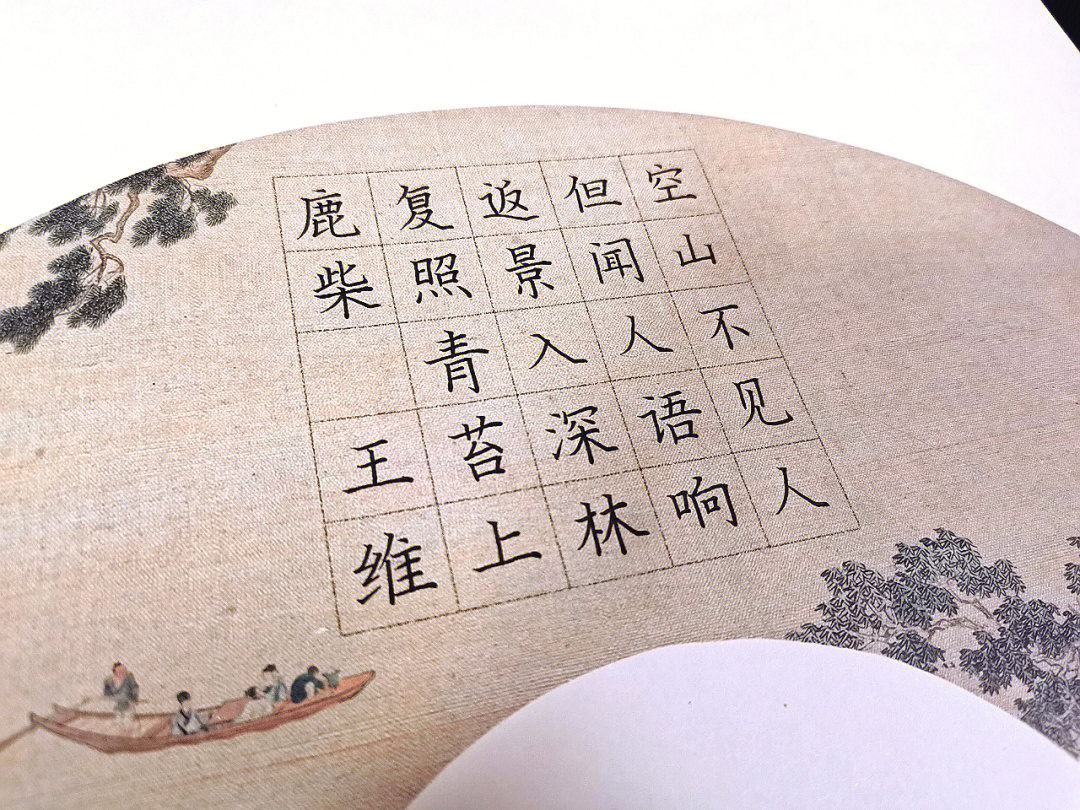 空山不见人
但闻人语响
返景入深林
复照青苔上
鹿柴 王维